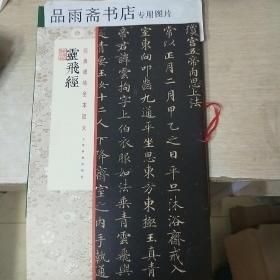 品雨斋书店专用图片
靈飛經
瓊宮五帝內思上法
常以正月二月甲乙之日平旦沐浴齋戒入
室東向叩齒九通平坐思東方東極玉真青
帝君諱雲拘字上伯衣服如法乘青雲飛輿
從青要玉女十二人下降齋室之內手執通